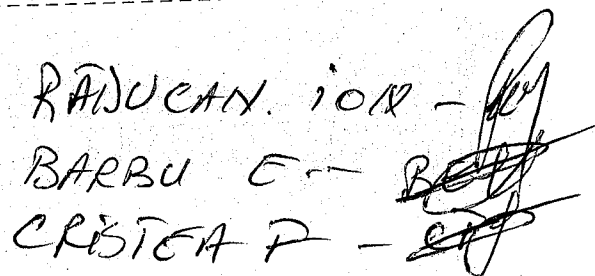 RĂDUCAN. ION -
BARBU E. -
CRISTEA P -